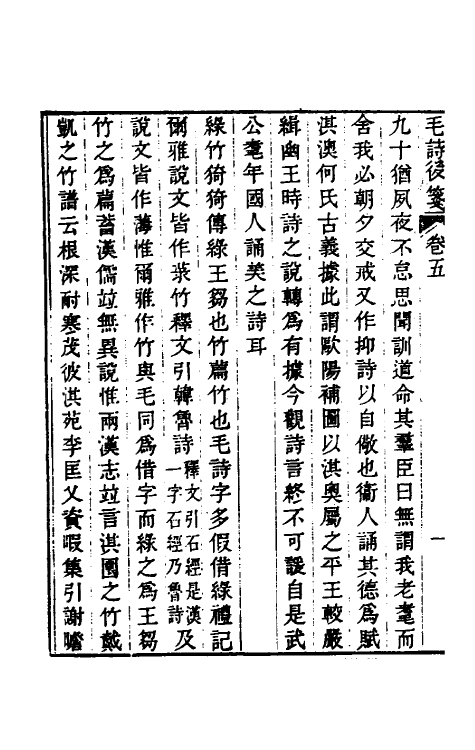 毛詩後箋　卷五　一
九十猶夙夜不怠思聞訓道命其羣臣曰無謂我老耄而
舍我必朝夕交戒又作抑詩以自儆也衞人誦其德爲賦
淇澳何氏古義據此謂歐陽補圖以淇奧屬之平王較嚴
緝幽王時詩之說轉爲有據今觀詩言終不可諼自是武
公耄年國人誦美之詩耳
綠竹猗猗傳綠王芻也竹萹竹也毛詩字多假借綠禮記
爾雅說文皆作菉竹釋文引韓魯詩釋文引石經是漢一字石經乃魯詩及
說文皆作薄惟爾雅作竹與毛同爲借字而綠之爲王芻
竹之爲萹蓄漢儒竝無異說惟兩漢志竝言淇園之竹戴
凱之竹譜云根深耐寒茂彼淇苑李匡乂資暇集引謝瞻